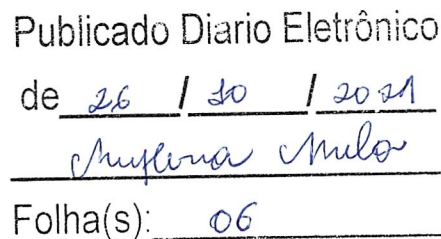 Publicado Diario Eletrônico
de 26 / 10 / 2021
Folha(s): 06